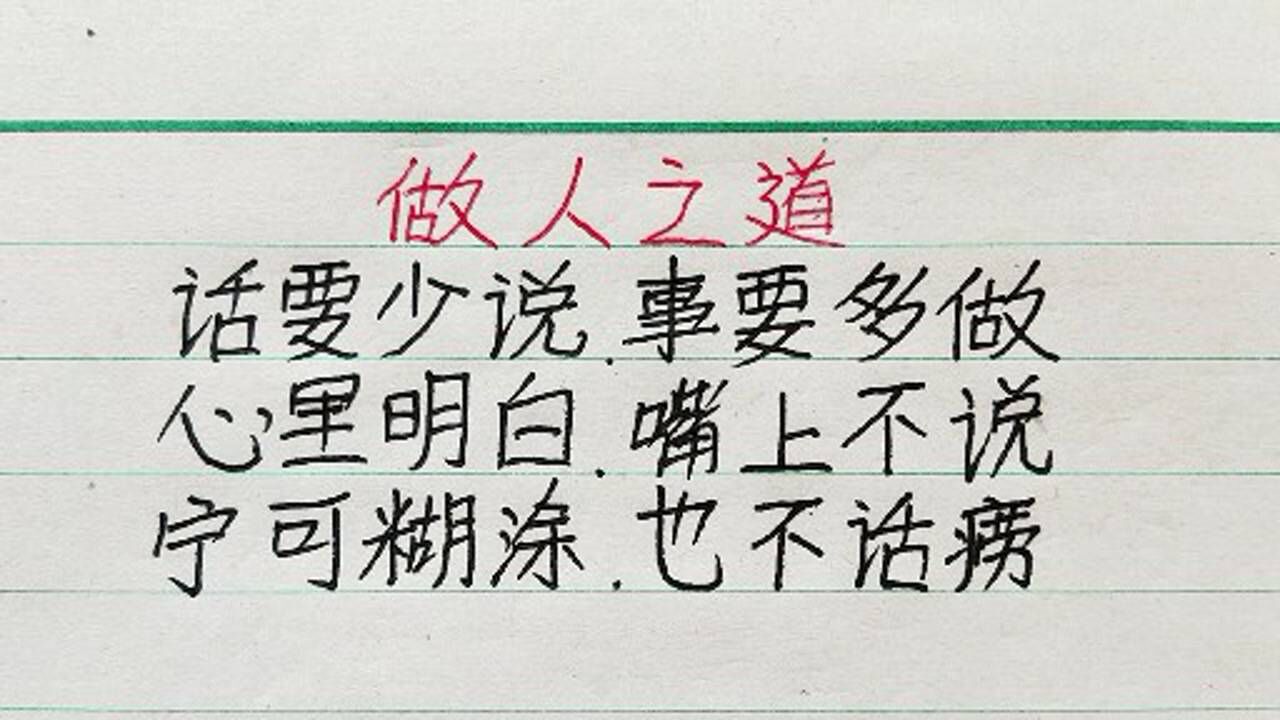 做人之道
话要少说.事要多做
心里明白.嘴上不说
宁可糊涂.也不话痨